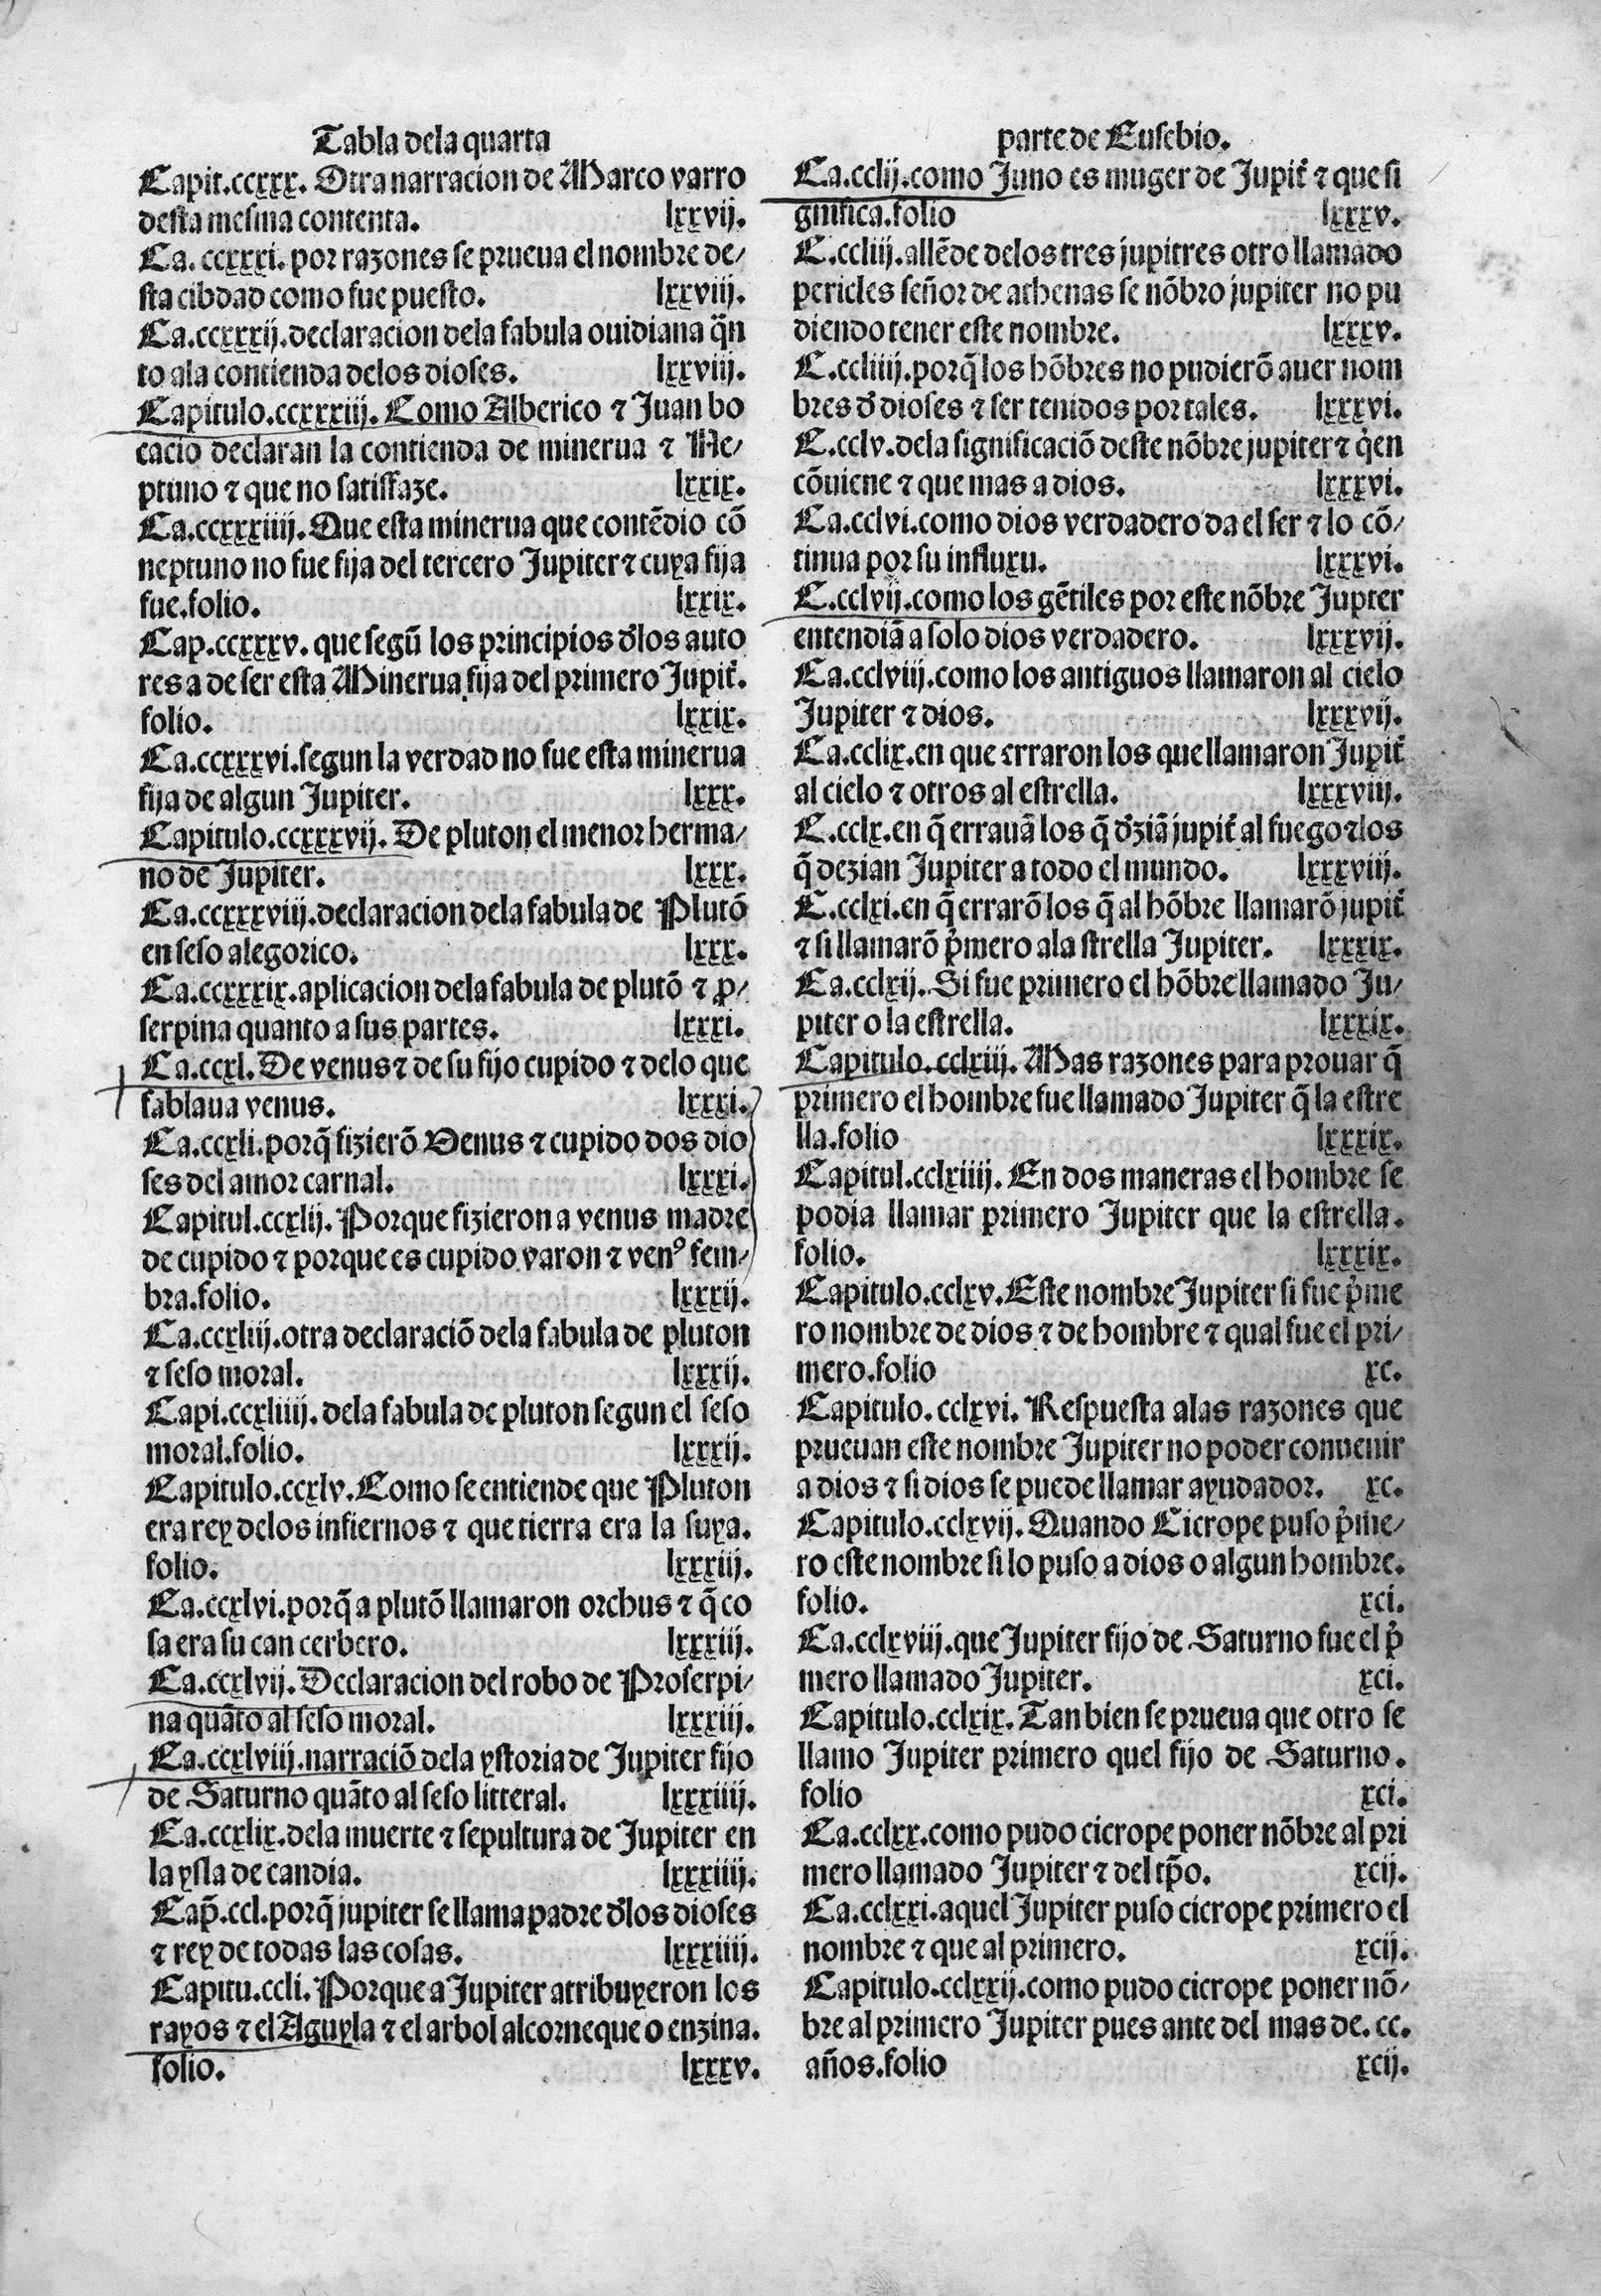 Tabla dela quarta
Capit.ccxxx. Otra narracion de Marco varro
desta mesma contenta. lxxvij.
Ca. ccxxxi. por razones se prueua el nombre de/
sta cibdad como fue puesto. lxxviij.
Ca.ccxxxij.declaracion dela fabula ouidiana q̃n
to ala contienda delos dioses. lxxviij.
Capitulo.ccxxxiij. Como Alberico ⁊ Juan bo
cacio declaran la contienda de minerua ⁊ Ne/
ptuno ⁊ que no satisfaze. lxxix.
Ca.ccxxxiiij.Que esta minerua que contẽdio cõ
neptuno no fue fija del tercero Jupiter ⁊ cuya fija
fue.folio. lxxix.
Cap.ccxxxv. que segũ los principios đlos auto
res a de ser esta Minerua fija del primero Jupit̃.
folio. lxxix.
Ca.ccxxxvi.segun la verdad no fue esta minerua
fija de algun Jupiter. lxxx.
Capitulo.ccxxxvij. De pluton el menor herma/
no de Jupiter. lxxx.
Ca.ccxxxviij.declaracion dela fabula de Plutõ
en seso alegorico. lxxx.
Ca.ccxxxix.aplicacion dela fabula de plutõ ⁊ ꝓ/
serpina quanto a sus partes. lxxxi.
Ca.ccxl. De venus ⁊ de su fijo cupido ⁊ delo que
fablaua venus. lxxxi.
Ca.ccxli.porq̃ fizierõ Venus ⁊ cupido dos dio
ses del amor carnal. lxxxi.
Capitul.ccxlij. Porque fizieron a venus madre
de cupido ⁊ porque es cupido varon ⁊ venꝰ fem/
bra.folio. lxxxij.
Ca.ccxliij.otra declaraciõ dela fabula de pluton
⁊ seso moral. lxxxij.
Capi.ccxliiij. dela fabula de pluton segun el seso
moral.folio. lxxxij.
Capitulo.ccxlv.Como se entiende que Pluton
era rey delos infiernos ⁊ que tierra era la suya.
folio. lxxxiij.
Ca.ccxlvi.porq̃ a plutõ llamaron orchus ⁊ q̃ co
sa era su can cerbero. lxxxiij.
Ca.ccxlvij. Declaracion del robo de Proserpi/
na quãto al seso moral. lxxxiij.
Ca.ccxlviij.narraciõ dela ystoria de Jupiter fijo
de Saturno quãto al seso litteral. lxxxiiij.
Ca.ccxlix.dela muerte ⁊ sepultura de Jupiter en
la ysla de candia. lxxxiiij.
Cap̃.ccl.porq̃ jupiter se llama padre đlos dioses
⁊ rey de todas las cosas. lxxxiiij.
Capitu.ccli. Porque a Jupiter atribuyeron los
rayos ⁊ el Aguyla ⁊ el arbol alcorneque o enzina.
folio. lxxxv.
parte de Eusebio.
Ca.cclij.como Juno es muger de Jupit̃ ⁊ que si
gnifica.folio lxxxv.
C.ccliij.allẽde delos tres jupitres otro llamado
pericles señor de athenas se nõbro jupiter no pu
diendo tener este nombre. lxxxv.
C.ccliiij.porq̃ los hõbres no pudierõ auer nom
bres đ dioses ⁊ ser tenidos por tales. lxxxvi.
C.cclv.dela significaciõ deste nõbre jupiter ⁊ q̃en
cõuiene ⁊ que mas a dios. lxxxvi.
Ca.cclvi.como dios verdadero da el ser ⁊ lo cõ/
tinua por su influxu. lxxxvi.
C.cclvij.como los gẽtiles por este nõbre Jupter
entendiã a solo dios verdadero. lxxxvij.
Ca.cclviij.como los antiguos llamaron al cielo
Jupiter ⁊ dios. lxxxvij.
Ca.cclix.en que erraron los que llamaron Jupit̃
al cielo ⁊ otros al estrella. lxxxviij.
C.cclx.en q̃ errauã los q̃ đziã jupit̃ al fuego ⁊ los
q̃ dezian Jupiter a todo el mundo. lxxxviij.
C.cclxi.en q̃ errarõ los q̃ al hõbre llamarõ jupit̃
⁊ si llamarõ p̃mero ala strella Jupiter. lxxxix.
Ca.cclxij. Si fue primero el hõbre llamado Ju/
piter o la estrella. lxxxix.
Capitulo.cclxiij. Mas razones para prouar q̃
primero el hombre fue llamado Jupiter q̃ la estre
lla.folio lxxxix.
Capitul.cclxiiij. En dos maneras el hombre se
podia llamar primero Jupiter que la estrella.
folio. lxxxix.
Capitulo.cclxv.Este nombre Jupiter si fue p̃me
ro nombre de dios ⁊ de hombre ⁊ qual fue el pri/
mero.folio xc.
Capitulo. cclxvi. Respuesta alas razones que
prueuan este nombre Jupiter no poder conuenir
a dios ⁊ si dios se puede llamar ayudador. xc.
Capitulo.cclxvij. Quando Cicrope puso p̃me/
ro este nombre si lo puso a dios o algun hombre.
folio. xci.
Ca.cclxviij.que Jupiter fijo de Saturno fue el p̃
mero llamado Jupiter. xci.
Capitulo.cclxix. Tan bien se prueua que otro se
llamo Jupiter primero quel fijo de Saturno.
folio xci.
Ca.cclxx.como pudo cicrope poner nõbre al pri
mero llamado Jupiter ⁊ del tp̃o. xcij.
Ca.cclxxi.aquel Jupiter puso cicrope primero el
nombre ⁊ que al primero. xcij.
Capitulo.cclxxij.como pudo cicrope poner nõ/
bre al primero Jupiter pues ante del mas de. cc.
años.folio xcij.